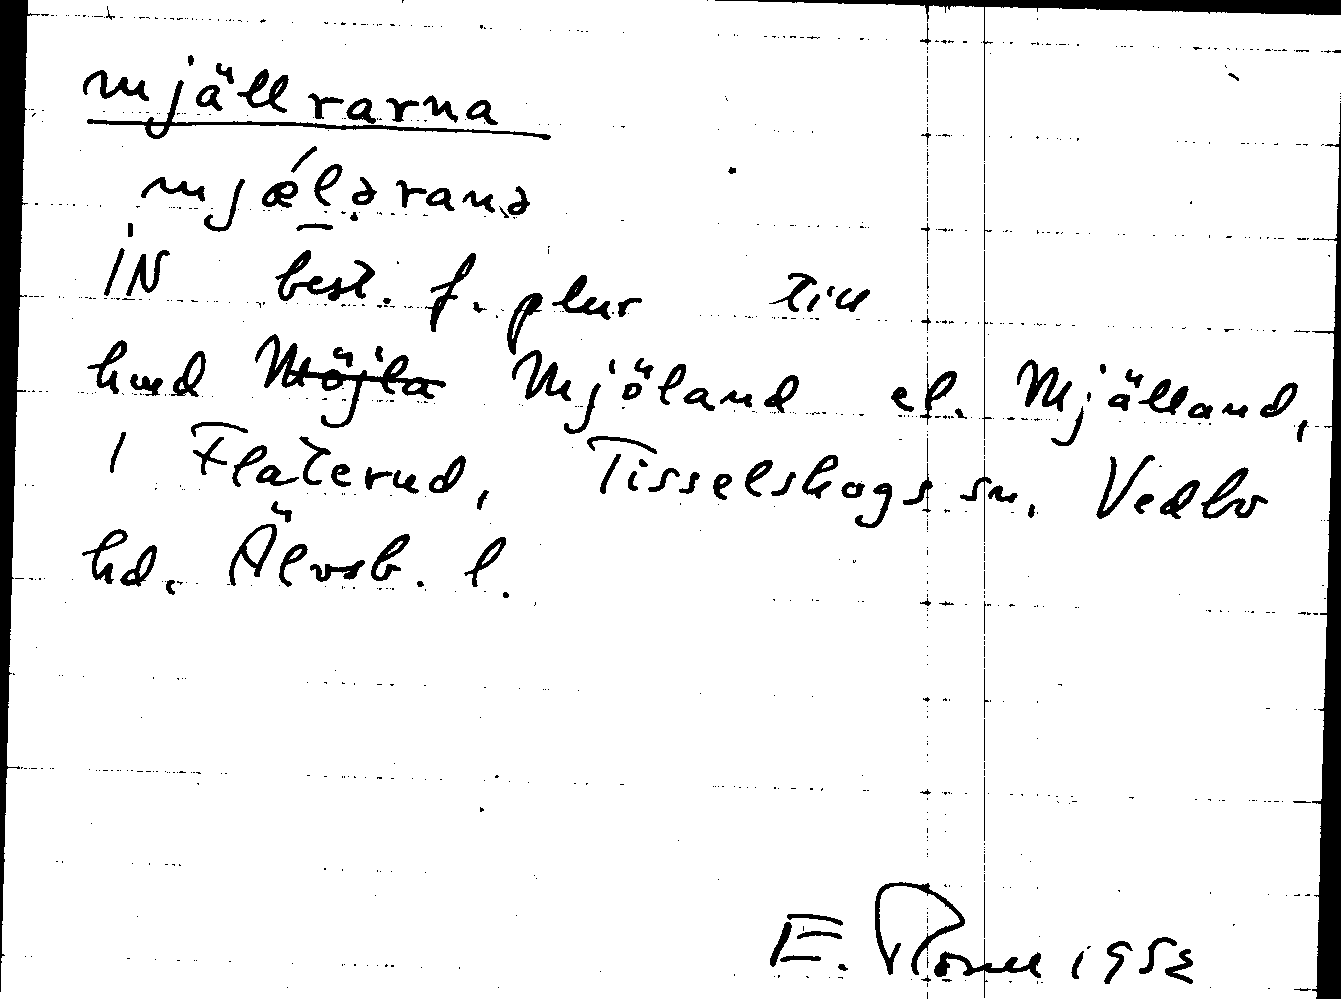 mjällrarna
mjǽlə̣ranə
IN best. f. plur till
hmd Möjla Mjöland el. Mjälland,
i Flaterud, Tisselskogs sn, Vedbo
hd. Älvsb. l.
E. 1952